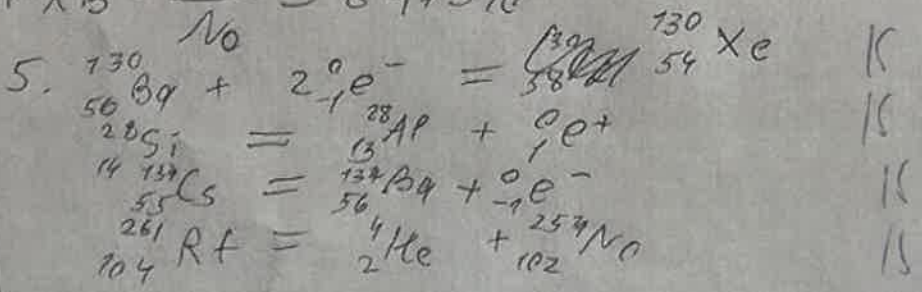 No
5. ¹³⁰₅₆Ba + 2⁰₋₁e⁻ = ¹³⁰₅₄Xe 1б
²⁸₁₄Si = ²⁸₁₃Al + ⁰₁e⁺ 1б
¹³⁷₅₅Cs = ¹³⁷₅₆Ba + ⁰₋₁e⁻ 1б
²⁶¹₁₀₄Rf = ⁴₂He + ²⁵⁷₁₀₂No 1б